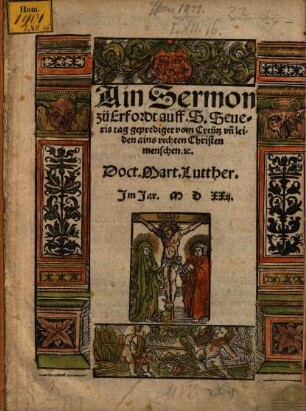 Hom.
1901
Ain Sermon
zů Erfordt auff. S. Seue-
ris tag geprediget vom Creütz vñ lei-
den ains rechten Christen
menschen. ꝛc.
Doct. Mart. Lutther.
Im Jar. M D XXij.